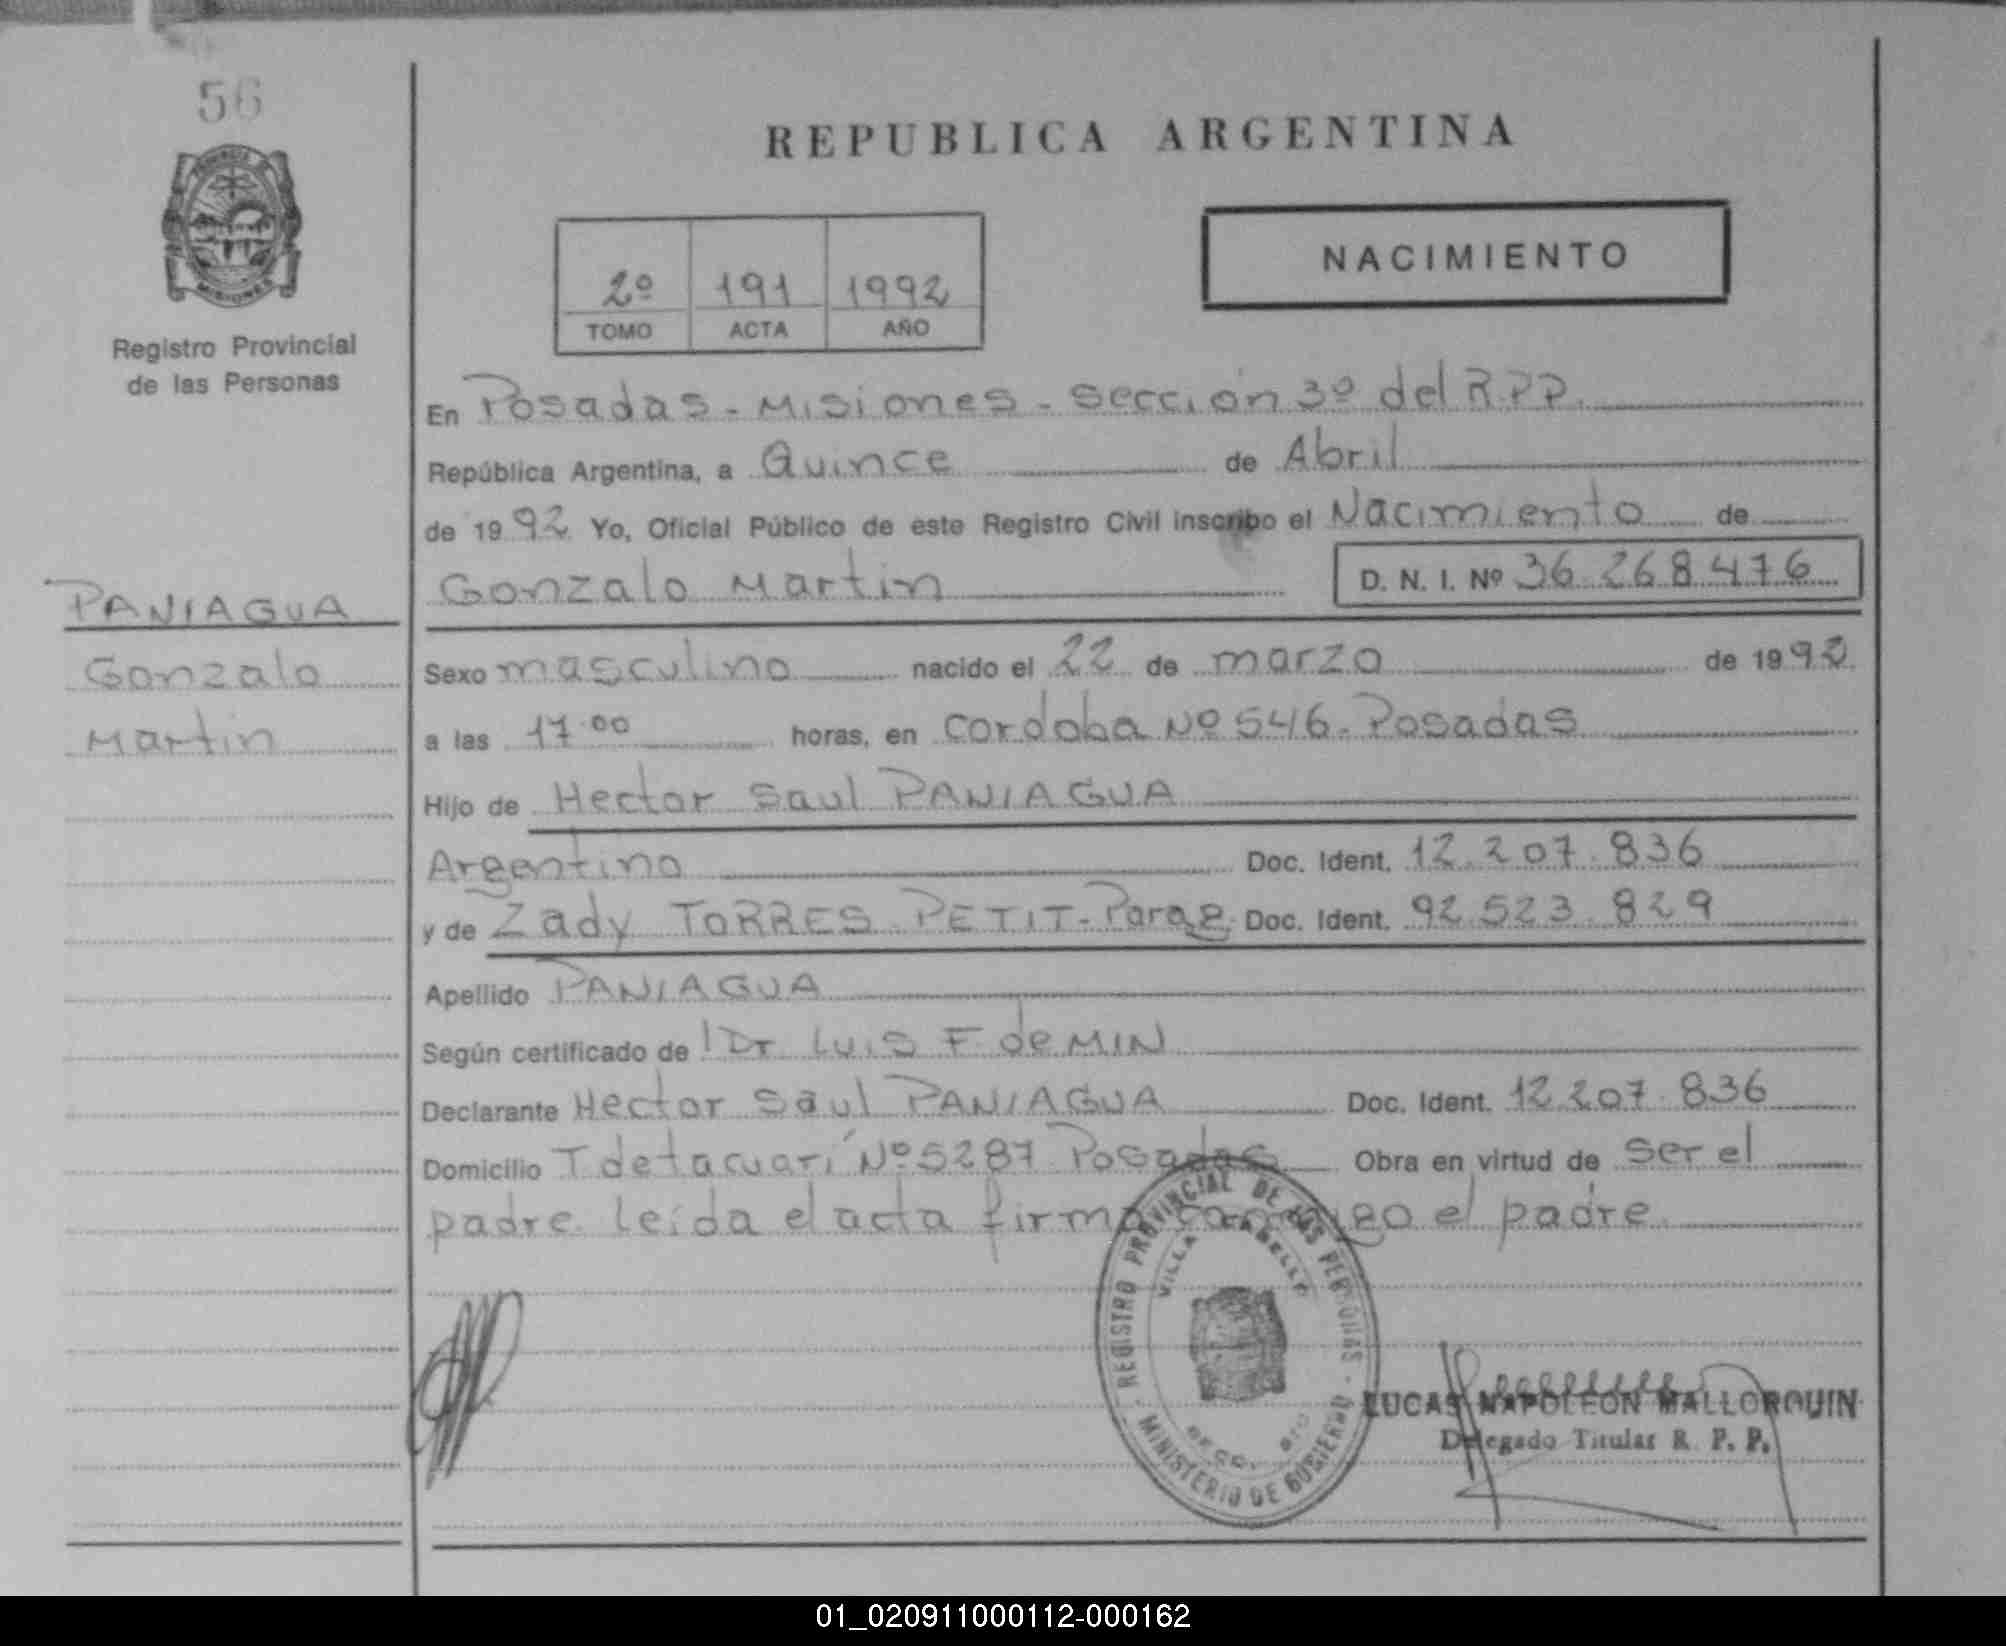 56
PROVINCIA DE
MISIONES
Registro Provincial
de las Personas
REPUBLICA ARGENTINA
2º 191 1992
TOMO ACTA AÑO
NACIMIENTO
En Posadas - Misiones - Sección 3º del R.P.P.
República Argentina, a Quince de Abril
de 1992 Yo, Oficial Público de este Registro Civil inscribo el Nacimiento de
Gonzalo Martin D. N. I. Nº 36.268.476
PANIAGUA
Gonzalo
Martin
Sexo masculino nacido el 22 de marzo de 1992
a las 17.00 horas, en Cordoba Nº 546 - Posadas
Hijo de Hector Saul PANIAGUA
Argentino Doc. Ident. 12.207.836
y de Zady TORRES PETIT - Parag. Doc. Ident. 92.523.829
Apellido PANIAGUA
Según certificado de Dr. Luis F. de MIN
Declarante Hector Saul PANIAGUA Doc. Ident. 12.207.836
Domicilio T de tacuarí Nº 5287 Posadas Obra en virtud de ser el
padre. leída el acta firma conmigo el padre.
REGISTRO PROVINCIAL DE LAS PERSONAS
VILLA CABELLO
MINISTERIO DE GOBIERNO
LUCAS NAPOLEON MALLORQUIN
Delegado Titular R. P. P.
01_020911000112-000162